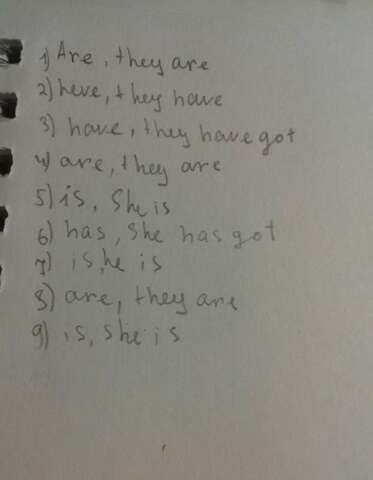 1) Are, they are
2) heve, they have
3) have, they have got
4) are, they are
5) is, She is
6) has, she has got
7) is, he is
8) are, they are
9) is, she is